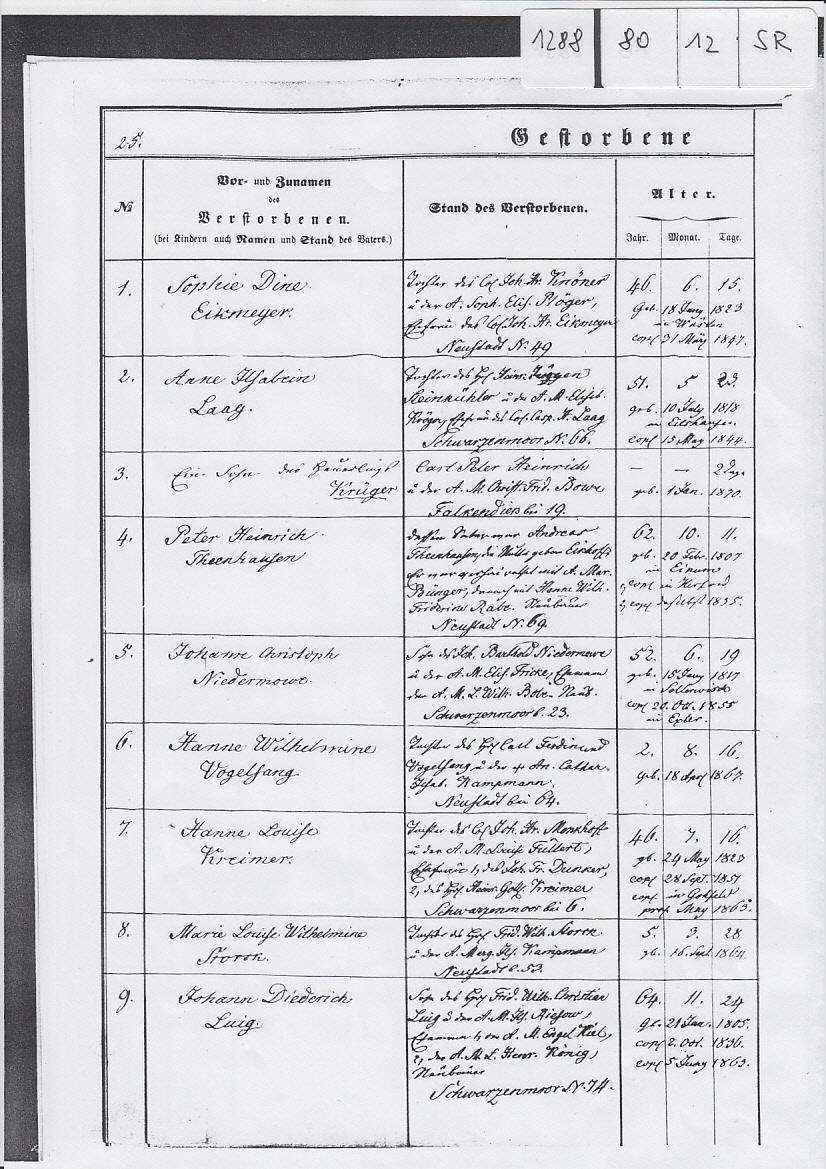 1288 80 12 SR
25.
Gestorbene
№
Vor- und Zunamen
des
Verstorbenen.
(bei Kindern auch Namen und Stand des Vaters.)
Stand des Verstorbenen.
Alter.
Jahr. Monat. Tage.
1.
Sophie Dine
Eikmeyer.
Tochter des Col Joh. Hr. Krröner
u der A. Soph. Elis. Plöger,
Ehefrau des Col Joh. Hr. Eikmeyer
Neustadt N. 49
46. 6. 15.
geb. 18 Juny 1823
in
cop 31 März 1847.
2.
Anne Ilsabein
Laag.
Tochter des Heinr.
Steinkühler u der A. M. Elisab.
Kröger, Ehefrau des Col. Casp. H. Laag
Schwarzenmoor N. 66.
51. 5 23.
geb. 10 July 1818
in
cop 15 May 1844.
3.
Ein Sohn des Heuerlings
Krüger
Carl Peter Heinrich
u der A. M. Christ. Frid. Bowe
Falkendiek bei 19.
— — 2 Tage
geb. 1 Jan. 1870.
4.
Peter Heinrich
Theenhausen
dessen Vater war Andreas
Theenhausen, die Mutter geborn
Er war verheirathet mit A. Mar.
Bünger, darauf mit Hanne Wilh.
Friderine Rabe. Neubauer
Neustadt N. 69.
62. 10. 11.
geb. 20 Febr. 1807
in
1, cop in Herford
2, cop daselbst 1835.
5.
Johann Christoph
Niedermowe.
Sohn des Joh. Barthold Niedermowe
u der A. M. Elis. Fricke, Ehemann
der A. M. L. Wilh. Bobe. Neub.
Schwarzenmoor b. 23.
52. 6. 19
geb. 15 Juny 1817
in
cop 20. Oct. 1855
in Exter.
6.
Hanne Wilhelmine
Vogelsang.
Tochter des Carl Ferdinand
Vogelsang u der An. Cathar.
Ilsab. Kampmann.
Neustadt bei 64.
2. 8. 16.
geb. 18 April 1867.
7.
Hanne Louise
Kreimer.
Tochter des Col Joh. Hr. Monkhoff
u der A. M. Louise Füllert,
Ehefrau 1, des Joh. Fr. Dunker,
2, des Heinr. Gottl. Kreimer
Schwarzenmoor bei 6.
46. 7. 16.
gb. 24 May 1823
cop 28 Sept. 1851
cop. in Gohfeld
May 1863.
8.
Marie Louise Wilhelmine
Storck.
Tochter des Frid. Wilh. Storck
u der A. Marg. Ils. Kampmann
Neustadt b. 53.
5. 3. 28
gb. 16 Sept. 1864.
9.
Johann Diederich
Luig.
Sohn des Frid. Wilh. Christian
Luig u der A. M. Ils. Riesow,
Ehemann 1, der A. M. Engel Kiel,
2, der A. M. L. Henr. König,
Neubauer
Schwarzenmoor N. 74.
64. 11. 24
gb. 21 Jan. 1805.
cop 2. Oct. 1836.
cop 5 Juny 1863.